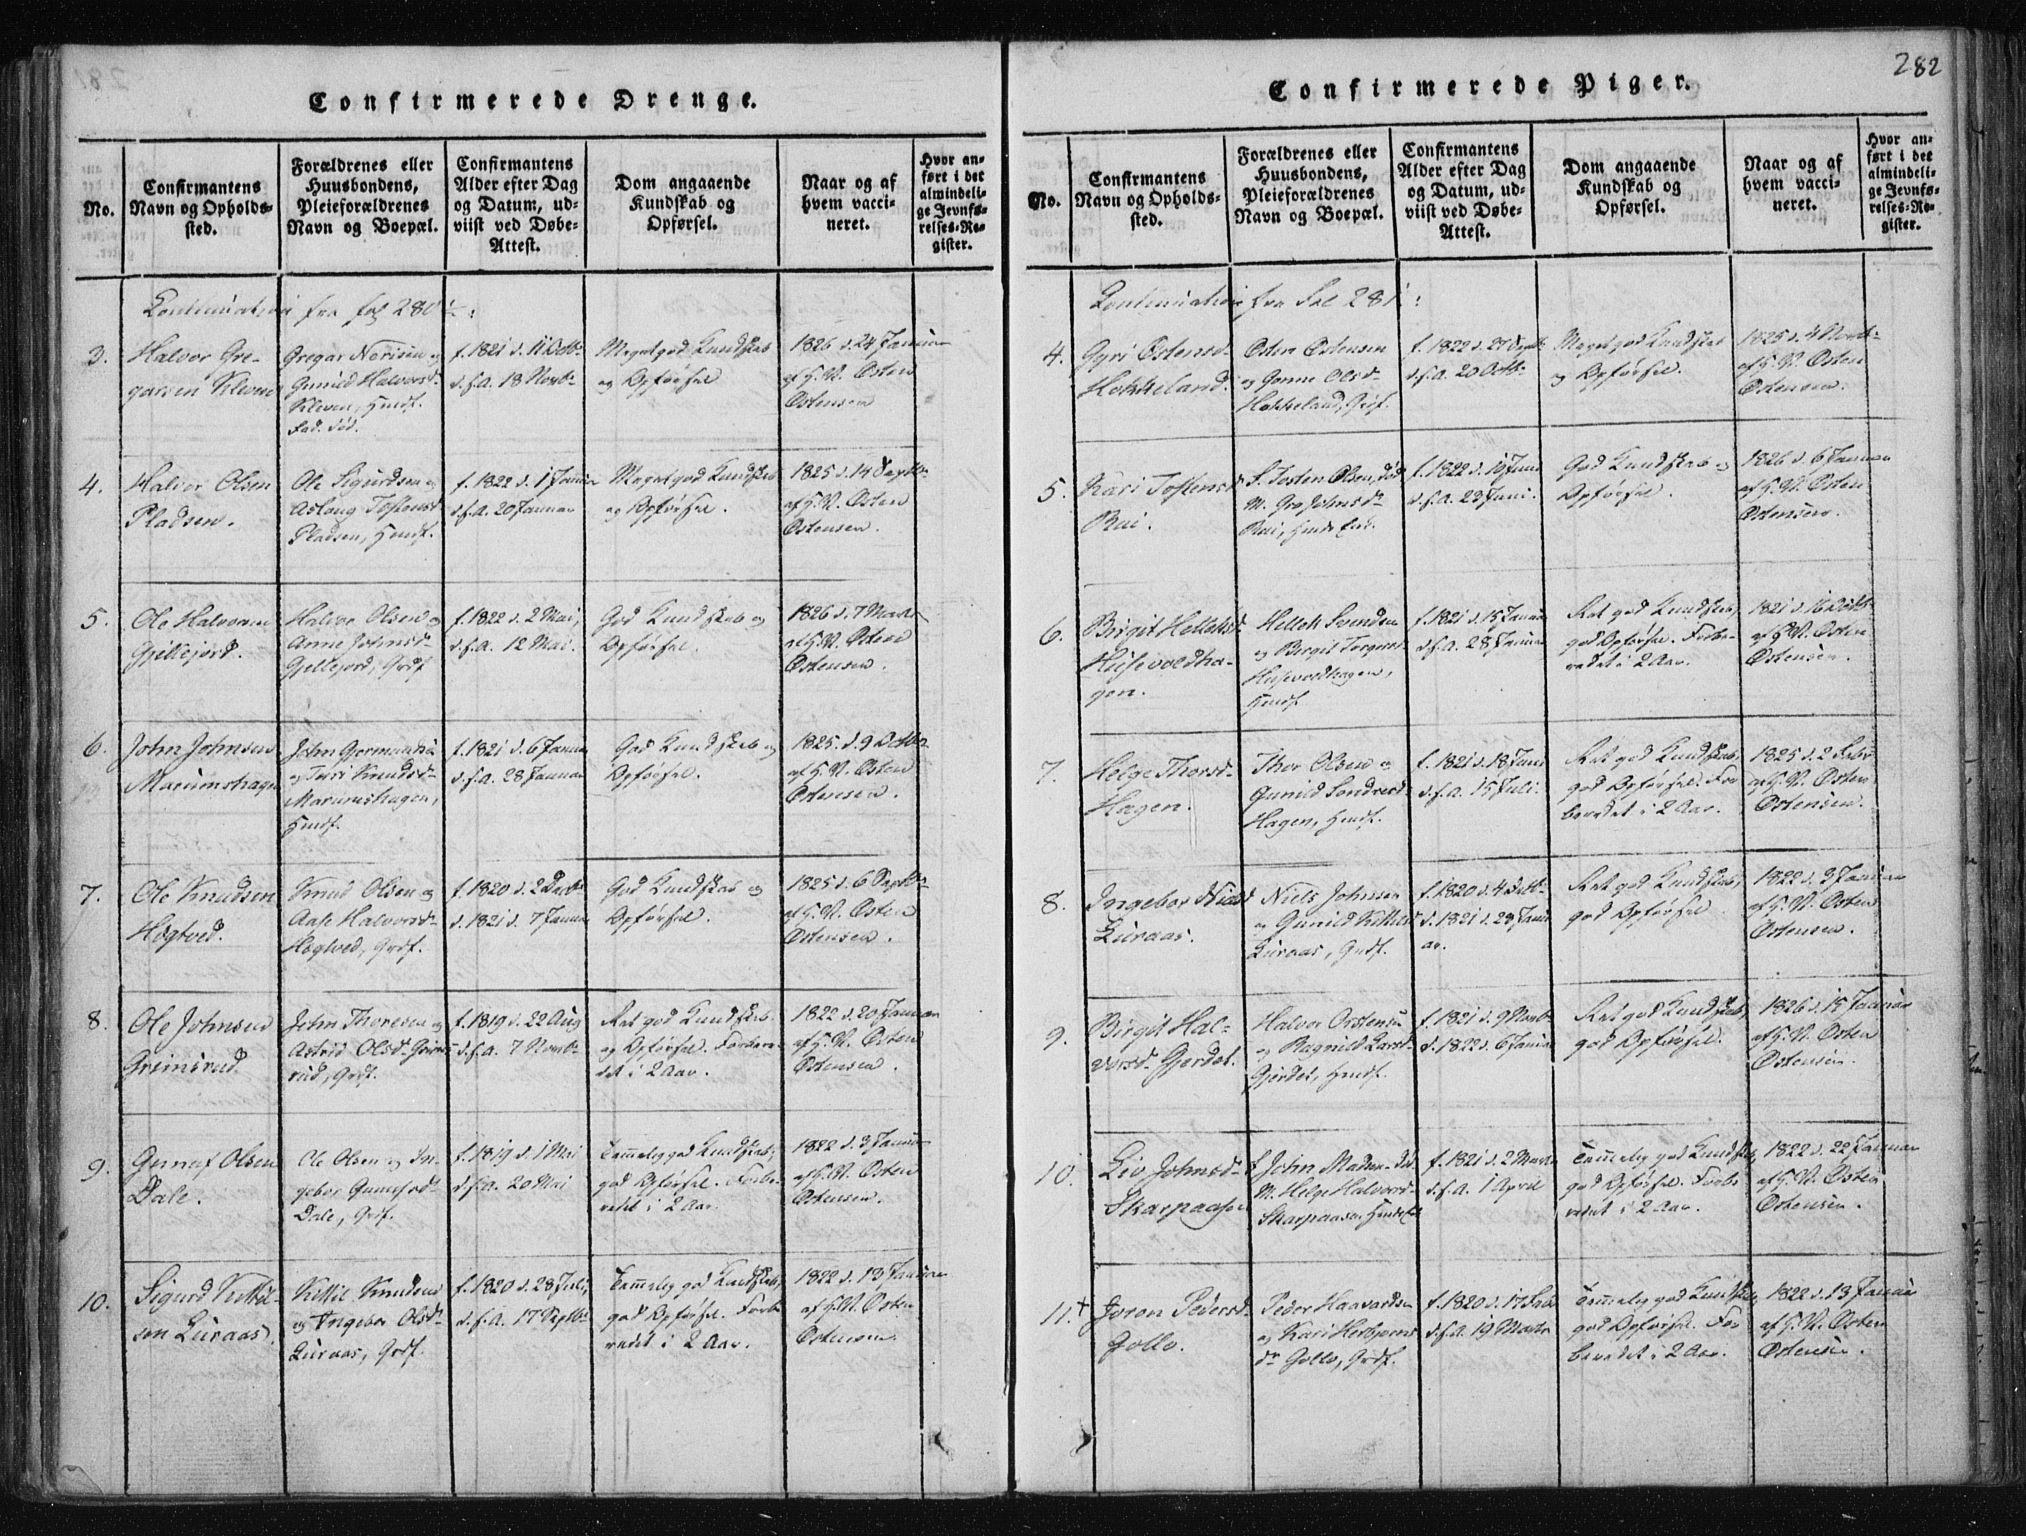 282
Confirmerede Drenge.
No.
Confirmantens
Navn og Opholds-
sted.
Forældrenes eller
Huusbondens,
Pleieforældrenes
Navn og Boepæl.
Confirmantens
Alder efter Dag
og Datum, ud-
viist ved Døbe-
Attest.
Dom angaaende
Kundskab og
Opførsel.
Naar og af
hvem vacci-
neret.
Hvor an-
ført i det
almindeli-
ge Jevnfø-
relses-Re-
gister.
Continuation fra fol 280
3.
Halvor Gre-
garsen Kleven
Gregar Norisen og
Gunild Halvorsd-
Kleven, Huusf.
Fad. død.
f. 1821 d. 11 Octb-
d.s.A. 18 Novb-
Meget god Kundskab
og Opførsel
1826 d. 24 Januar
af H.N. Østen
Østensen
4.
Halvor Olsen
Pladsen.
Ole Sigurdsen og
Aslaug Tostensd
Pladsen, Huusf.
f. 1822 d. 1 Januar
d.s.A. 20 Januar
Meget god Kundskab
og Opførsel.
1825 d. 14 Septb-
af H.N. Østen
Østensen.
5.
Ole Halvorsen
Gjellejord.
Halvor Olsen og
Anne Johnsd-
Gjellejord, Grdf.
f. 1822 d. 2 Mai,
d.s.A. 12 Mai.
God Kundskab og
Opførsel.
1826 d. 7 Marts
af H.N. Østen
Østensen.
6.
John Johnsen
Marumshagen
John Gjermundsen
og Kari Knudsd-
Marumshagen,
Huusf.
f. 1821 d. 6 Januar
d.s.A. 28 Januar
God Kundskab og
Opførsel.
1825. d. 9 Octbr
af H.N. Østen
Østensen.
7.
Ole Knudsen
Høgtved.
Knud Olsen og
Aase Halvorsd-
Høgtved, Grdf.
f. 1820 d. 2 Decb-
d. 1821 d. 7 Januar
God Kundskab og
Opførsel.
1825 d. 6 Septb-
af H.N. Østen
Østensen.
8.
Ole Johnsen
Grimsrud
John Thoresen og
Astrid Olsd- Grims-
rud, Grdf.
f. 1819 d. 22 Aug
d.s.A. 7 Novb-
Ret god Kundskab
og Opførsel. Forbere-
det i 2 Aar.
1822 d. 20 Januar
af H.N. Østen
Østensen.
9.
Gunuf Olsen
Dale.
Ole Olsen og In-
gebor Gunufsd-
Dale, Grdf.
f. 1819 d. 1 Mai
d.s.A. 20 Mai
Temmelig god Kundskab,
god Opførsel. Forbe-
redet i 2 Aar.
1822 d. 3 Januar
af H.N. Østen
Østensen.
10.
Sigurd Kittil-
sen Luraas.
Kittil Knudsen
og Ingebor Olsd-
Luraas, Grdf.
f. 1820 d. 28 Juli,
d.s.A. 17 Septb-
Temmelig god Kundskab,
god Opførsel. Forbe
redet i 2 Aar.
1822 d. 13 Januar
af H.N. Østen
Østensen.
Confirmerede Piger.
No.
Confirmantens
Navn og Opholds-
sted.
Forældrenes eller
Huusbondens,
Pleieforældrenes
Navn og Boepæl.
Confirmantens
Alder efter Dag
og Datum, ud-
viist ved Døbe-
Attest.
Dom angaaende
Kundskab og
Opførsel.
Naar og af
hvem vacci-
neret.
Hvor an-
ført i det
almindeli-
ge Jevnfø-
relses-Re-
gister.
Continuation fra Fol 281
4.
Gyri Østensd-
Hokkeland.
Østen Østensen
og Gonne Olsd-
Hokkeland, Grdf.
f. 1822 d. 27 Septb
d.s.A. 20 Octb-
Meget god Kundskab
og Opførsel.
1825 d. 4 Novb-
af H.N. Østen
Østensen.
5.
Kari Tostensd
Bui.
F. Tosten Olsen, død
M. Gro Johnsd-
Bui,
f. 1822 d. 19 Juni
d.s.A. 23 Juni.
God Kundskab og
Opførsel.
1826 d. 6 Januar
af H.N. Østen
Østensen.
6.
Birgit Helleksd-
Husevoldha-
gen.
Hellek Svendsen
og Birgit Torgersd-
Husevoldhagen,
Huusf
f. 1821 d. 15 Januar
d.s.A. 28 Januar
Ret god Kundskab,
god Opførsel. Forbe-
redet i 2 Aar.
1821 d. 16 Octb
af H.N. Østen
Østensen.
7.
Helge Thorsd-
Hagen.
Thor Olsen og
Gunild Sondresd-
Hagen, Huusf.
f. 1821 d. 18 Juni
d.s.A. 15 Juli.
Ret god Kundskab,
god Opførsel. For
beredet i 2 Aar.
1825 d. 2 Febr
af H.N. Østen
Østensen.
8.
Ingebor Nielsd
Luraas.
Niels Johnsen
og Gunild Kittilsd
Luraas, Grdf.
f. 1820 d. 4 Octb-
d. 1821 d. 28 Janu
ar.
Ret god Kundskab,
god Opførsel
1822 d. 3 Januar
af H.N. Østen
Østensen.
9.
Birgit Hal-
vorsd- Gjerdet.
Halvor Orstensen
og Ragnild Larsd-
Gjerdet, Huusf.
f. 1821 d. 9 Novb-
d. 1822 d. 6 Januar
Ret god Kundskab,
god Opførsel.
1826 d. 15 Januar
af H.N. Østen
Østensen.
10.
Liv Johnsd-
Skarpaasen
f John Madsen- død
M. Helge Halvorsd-
Skarpaasen
f. 1821 d. 2 Marts
d.s.A. 1 April
Temmelig god Kundskab,
god Opførsel. Forbe
redet i 2 Aar.
1822 d. 22 Januar
af H.N. Østen
Østensen.
11.+
Joron Pedersd-
Gollo.
Peder Haavardsen
og Kari Herbjørns
dr Gollo, Grdf.
f. 1820 d. 17 Feb
d.s.A. 19 Marts
Temmelig god Kundskab,
god Opførsel. For
beredet i 2 Aar.
1822 d. 13 Januar
af H.N. Østen
Østensen.